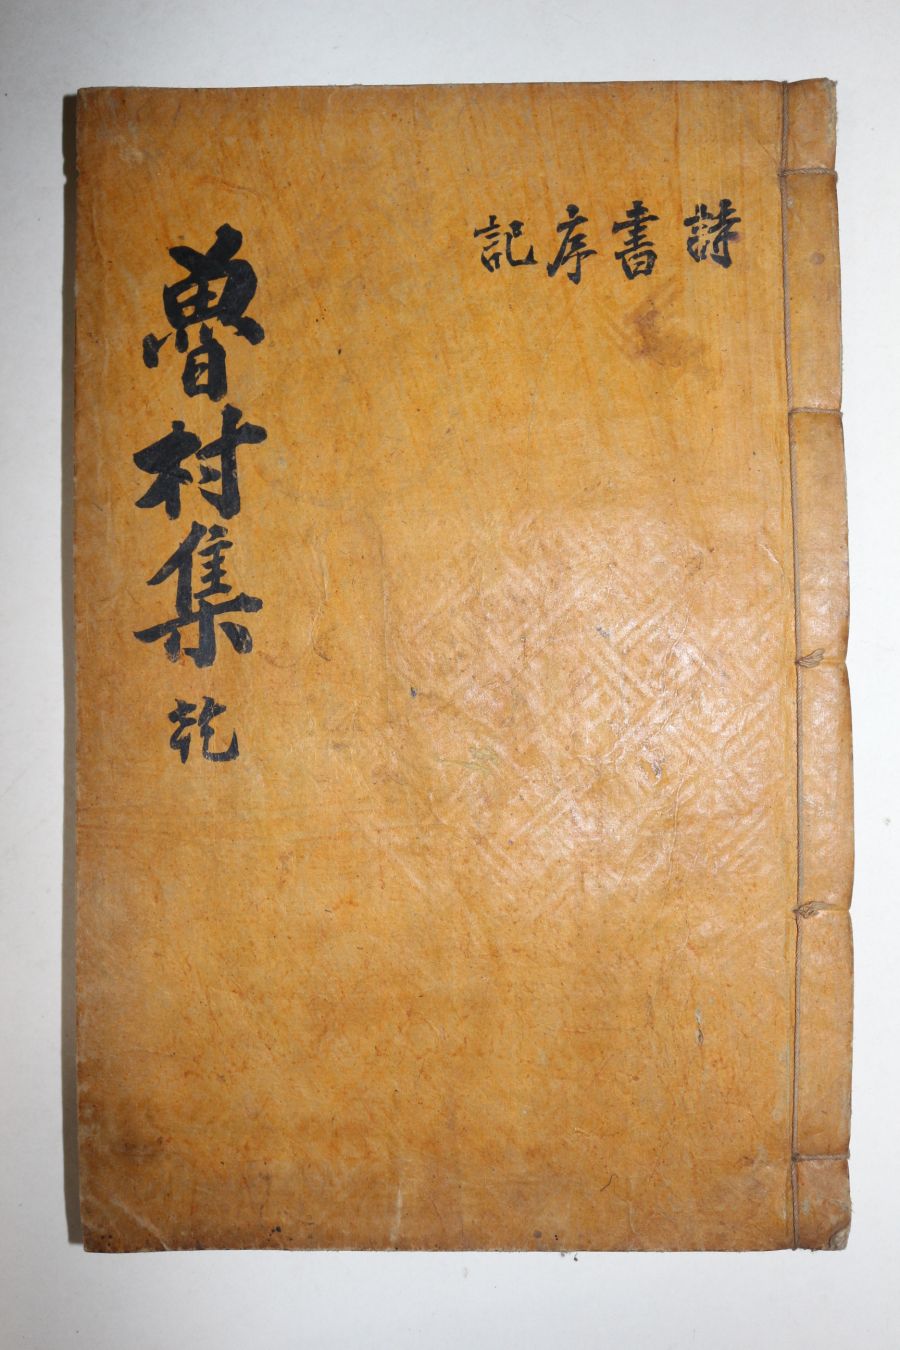 詩書序記
魯村集 乾